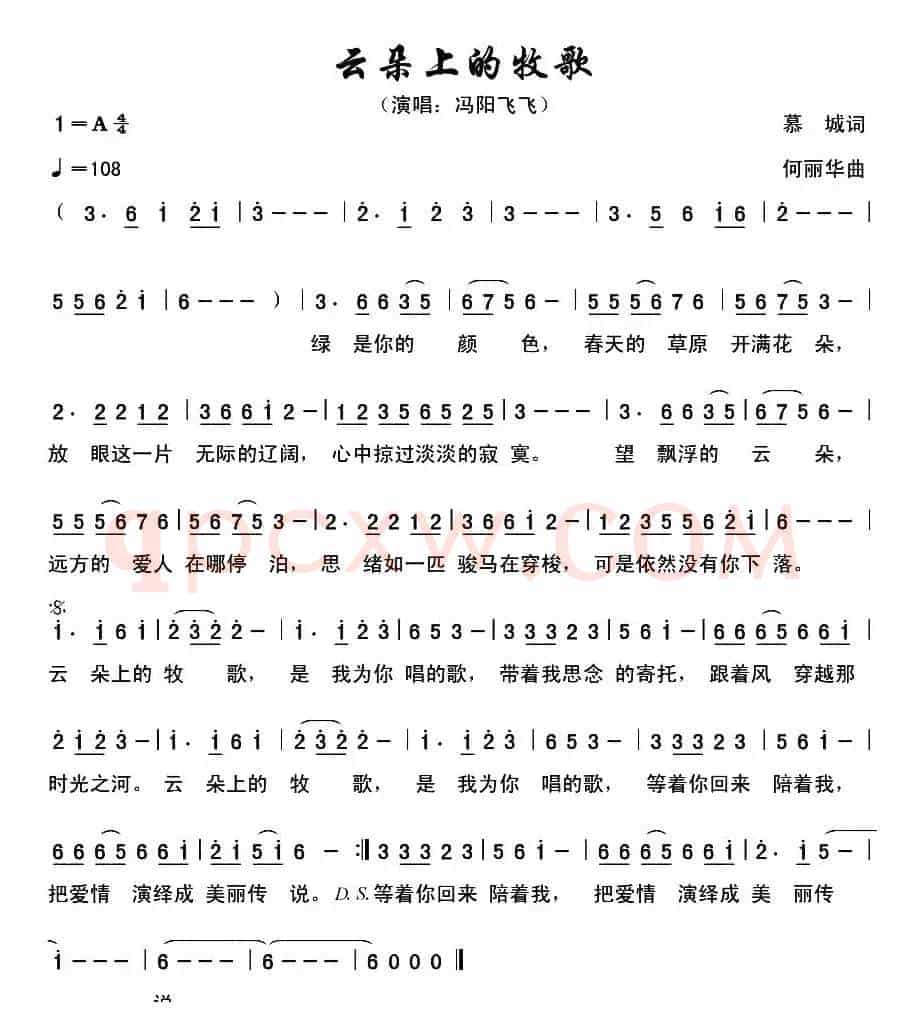 云朵上的牧歌
（演唱：冯阳飞飞）
1=A 4/4
慕 城词
♩=108
何丽华曲
( 3· 6 i 2̇i | 3̇--- | 2̇· i 2̇ 3̇ | 3--- | 3· 5 6 i6 | 2̇--- |
5562̇i | 6---) | 3· 6635 | 6756- | 555676 | 56753- |
绿 是你的 颜 色， 春天的 草原 开满花 朵，
2· 2212 | 366i2- | 12356525 | 3--- | 3· 6635 | 6756- |
放 眼这一片 无际的辽阔， 心中掠过淡淡的寂 寞。 望 飘浮的 云 朵，
555676 | 56753- | 2· 2212 | 366i2- | 1235562̇i | 6--- |
远方的 爱人 在哪停 泊， 思 绪如一匹 骏马在穿梭， 可是依然没有你下 落。
i· i6i | 2̇3̇2̇2̇- | i· i2̇3̇ | 653- | 333323 | 56i- | 6665666i |
云 朵上的 牧 歌， 是 我为你 唱的歌， 带着我思念 的寄托， 跟着风 穿越那
2̇i2̇3̇- | i· i6i | 2̇3̇2̇2̇- | i· i2̇3̇ | 653- | 333323 | 56i- |
时光之河。 云 朵上的 牧 歌， 是 我为你 唱的歌， 等着你回来 陪着我，
6665666i | 2̇i5i6 - :| 333323 | 56i- | 6665666i | 2̇· i5- |
把爱情 演绎成 美丽传 说。D.S.等着你回来 陪着我， 把爱情 演绎成 美 丽传
i--- | 6--- | 6--- | 6000 ‖
qpcxw.COM